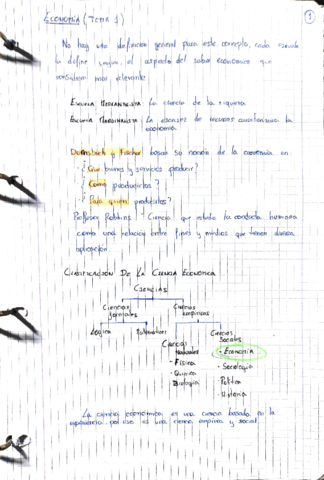 ECONOMÍA (TEMA 1)
1
No hay una definición general para este concepto, cada escuela
lo define según el aspecto del saber económico que
consideran más relevante
ESCUELA MERCANTILISTA: La ciencia de la riqueza
ESCUELA MARGINALISTA: La escasez de recursos caracteriza la
economía.
y Fischer basan su noción de la economía en:
¿Qué bienes y servicios producir?
¿Cómo producirlos?
¿Para quién producirlos?
Professor Robbins: Ciencia que estudia la conducta humana
como una relación entre fines y medios que tienen diversa
aplicación.
CLASIFICACIÓN DE LA CIENCIA ECONÓMICA
CIENCIAS
Ciencias formales
Ciencias empíricas
Lógica
Matemáticas
Ciencias Naturales
- Física
- Química
- Biología
Ciencias Sociales
- ECONOMÍA
- Sociología
Política
- Historia
La ciencia económica es una ciencia basada en la
experiencia, por eso es una ciencia empírica y social.